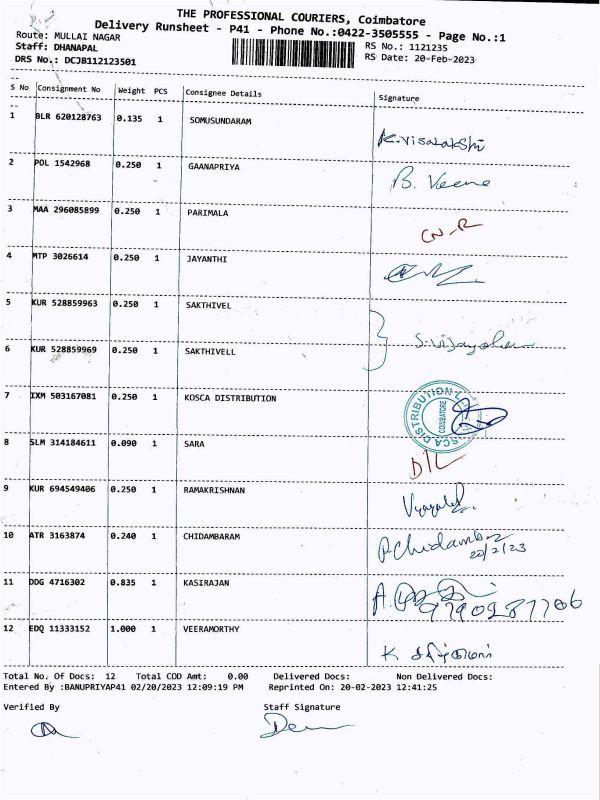 THE PROFESSIONAL COURIERS, Coimbatore
Delivery Runsheet - P41 - Phone No.:0422-3505555 - Page No.:1
Route: MULLAI NAGAR
RS No.: 1121235
Staff: DHANAPAL
RS Date: 20-Feb-2023
DRS No.: DCJB112123501
S No Consignment No Weight PCS Consignee Details Signature
1 BLR 620128763 0.135 1 SOMUSUNDARAM
K.Visalakshi
2 POL 1542968 0.250 1 GAANAPRIYA
B. Veena
3 MAA 296085899 0.250 1 PARIMALA
4 MTP 3026614 0.250 1 JAYANTHI
5 KUR 528859963 0.250 1 SAKTHIVEL
6 KUR 528859969 0.250 1 SAKTHIVELL
7 IXM 503167081 0.250 1 KOSCA DISTRIBUTION
COIMBATORE
8 SLM 314184611 0.090 1 SARA
D/L
9 KUR 694549406 0.250 1 RAMAKRISHNAN
10 ATR 3163874 0.240 1 CHIDAMBARAM
P.Chidambar
20/2/23
11 DDG 4716302 0.835 1 KASIRAJAN
12 EDQ 11333152 1.000 1 VEERAMORTHY
Total No. Of Docs: 12 Total COD Amt: 0.00 Delivered Docs: Non Delivered Docs:
Entered By :BANUPRIYAP41 02/20/2023 12:09:19 PM Reprinted On: 20-02-2023 12:41:25
Verified By Staff Signature